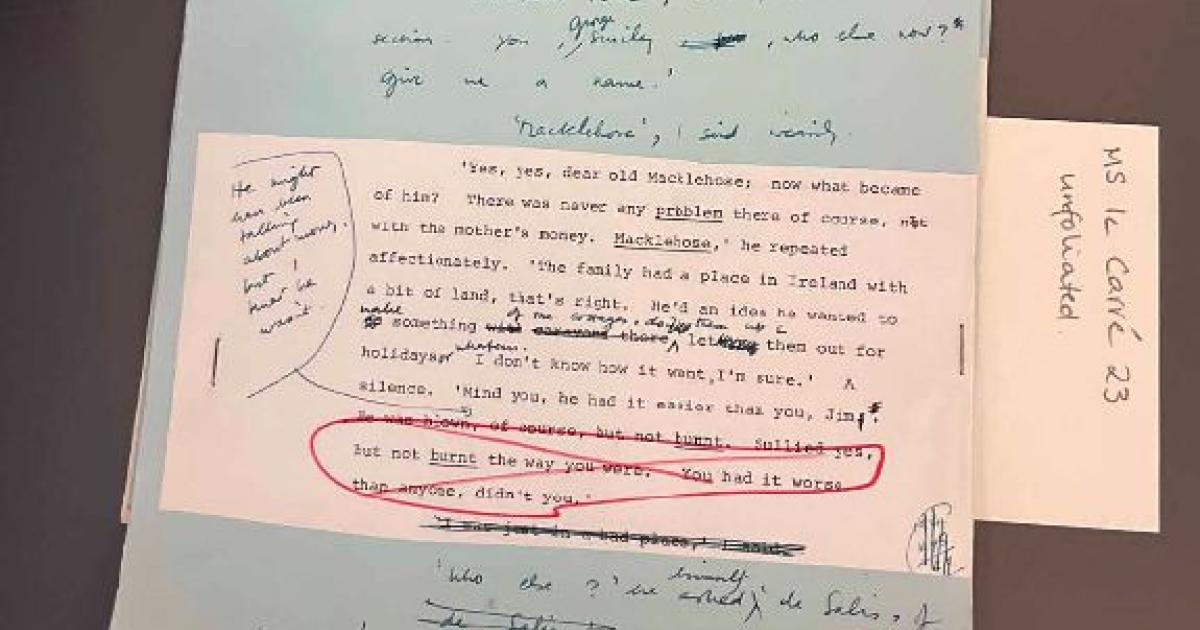 section. You, George Smiley, who else now?
give me a name.'
'Macklehose', I said
'Yes, yes, dear old Macklehose; now what became
of him? There was never any problem there of course, not
with the mother's money. Macklehose,' he repeated
affectionately. 'The family had a place in Ireland with
a bit of land, that's right. He'd an idea he wanted to
make something with caravans there, let them out for
holidays or whatever. I don't know how it went, I'm sure.' A
silence. 'Mind you, he had it easier than you, Jim.
He was blown, of course, but not burnt. Sullied yes,
but not burnt the way you were. You had it worse
than anyone, didn't you.'
'I was just in a bad place,' I said.
'Who else?' he asked de Salis, of
de Salis
He might
have been
talking
about now,
but I
knew he
wasn't.
MS le Carré 23
unfoliated.